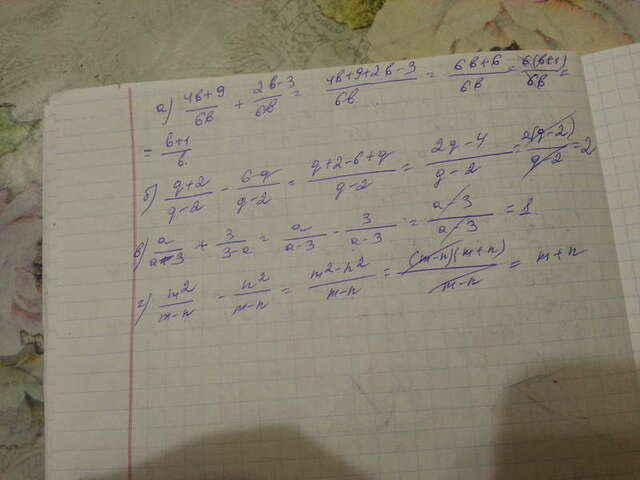 а) (4b+9)/6b + (2b-3)/6b = (4b+9+2b-3)/6b = (6b+6)/6b = 6(b+1)/6b =
= (b+1)/b
б) (q+2)/(q-2) - (6-q)/(q-2) = (q+2-6+q)/(q-2) = (2q-4)/(q-2) = 2(q-2)/(q-2) = 2
в) a/(a-3) + 3/(3-a) = a/(a-3) - 3/(a-3) = (a-3)/(a-3) = 1.
г) m²/(m-n) - n²/(m-n) = (m²-n²)/(m-n) = (m-n)(m+n)/(m-n) = m+n